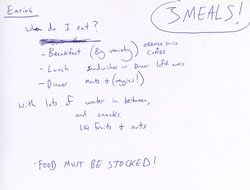 EATING
3 MEALS!
when do I eat?
- Breakfast (Big variety) ORANGE JUICE
COFFEE
- Lunch sandwiches or Dinner left overs
- Dinner meats & (veggies!)
with lots of water in between,
and snacks.
like fruits & nuts
-FOOD MUST BE STOCKED!